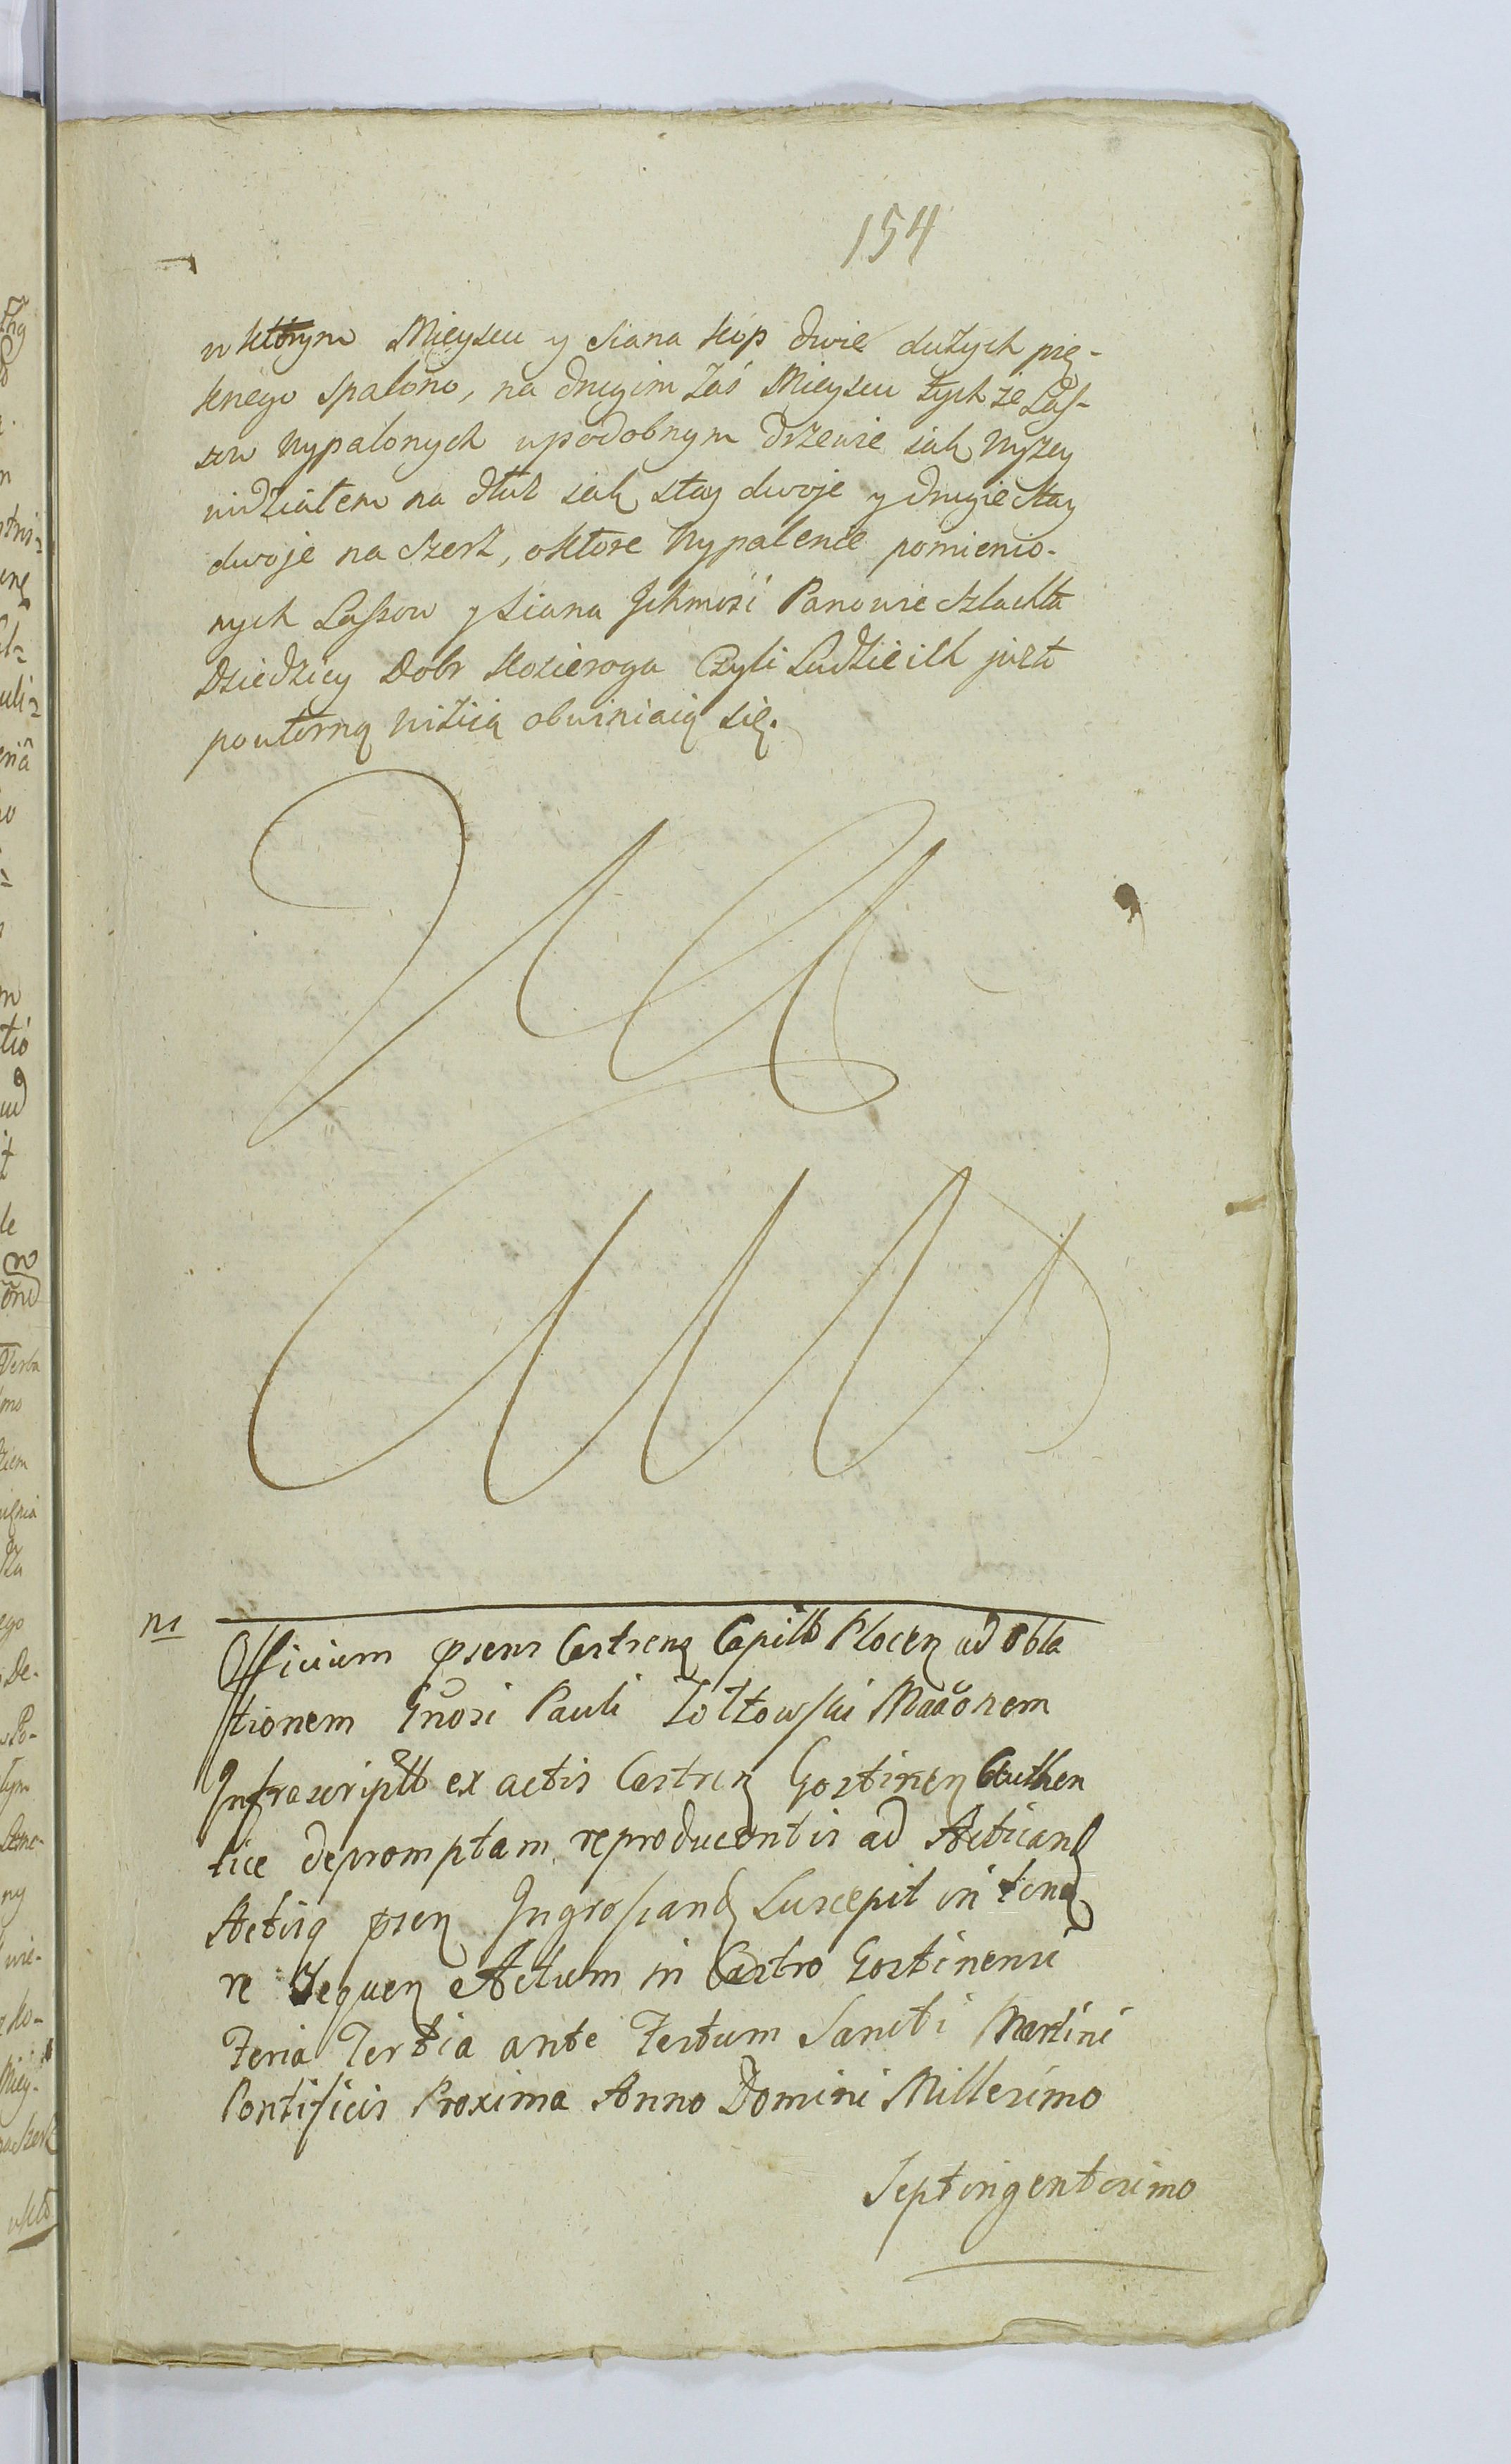 154
w którym Mieyscu y siana kóp dwie dużych pię-
knego spalono, na drugim zaś Mieyscu tychże Las-
sow wypalonych w podobnym drzewie iak wyzey
widziałem na dłuż iak stay dwoje y drugie stay
dwoje na szerz, o które wypalenie pomienio-
nych Lassow y siana Ichmość Panowie szlachta
Dziedzicy Dobr Kozieroga czyli Ludzie ich juxta
powtorną wizią obwiniaią się.
n1
Officium psens Castrens Capitt Plocen ad obla
tionem Gnosi Pauli Zołtowski Maaonem
Infrascriptt ex actis Castren Gostinen Authen
tice depromptam reproducentis ad Acticand
Actisq psen Ingrossand Suscepit in teno
re Sequen Actum in Castro Gostinensi
Feria Tertia ante Festum Sancti Martini
Pontificis Proxima Anno Domini Millesimo
Septingentesimo